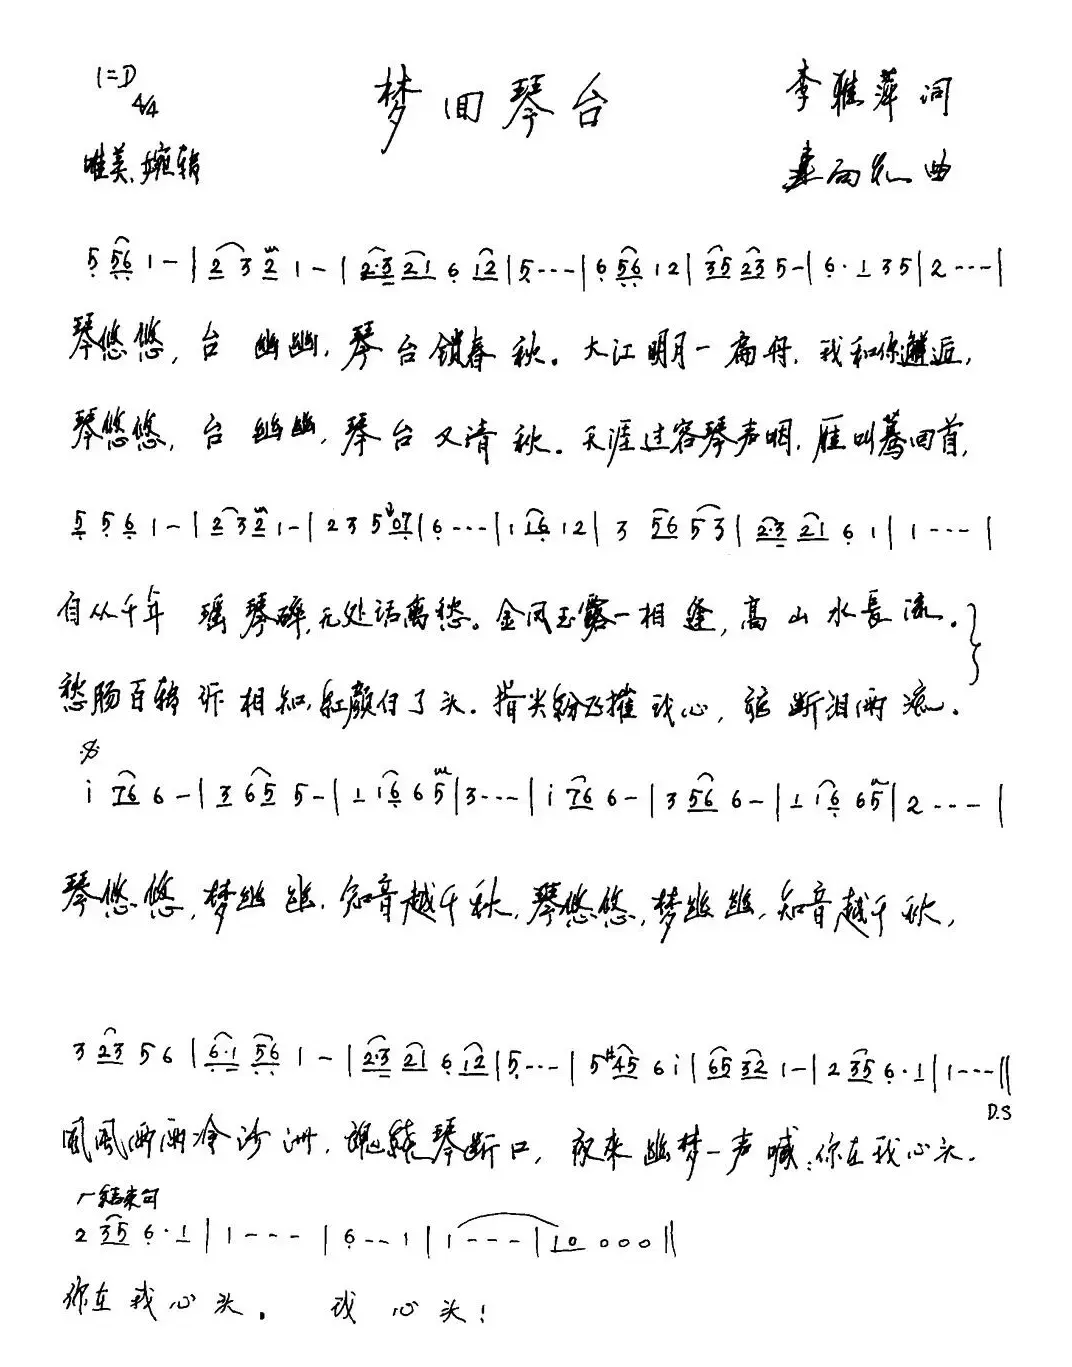 1=D 梦回琴台 李雅萍词
4/4
唯美、婉转 雨 曲
5 56 1 - | 2 3 2 1 - | 2·3 21 6 12 | 5 - - - | 6 56 12 | 35 23 5 - | 6 · 1 35 | 2 - - - |
琴悠悠，台幽幽，琴台锁春秋。大江明月一扁舟，我和你邂逅，
琴悠悠，台幽幽，琴台又清秋。天涯过客琴声咽，雁叫蓦回首，
5 5 6 1 - | 2 3 2 1 - | 2 3 5 07 | 6 - - - | 1 16 12 | 3 56 53 | 2·3 21 6 1 | 1 - - - |
自从千年瑶琴碎，无处话离愁。金风玉露一相逢，高山水長流。
愁肠百转诉相知，红颜付了头。指尖纷飞摧我心，弦断泪两流。
i 76 6 - | 3 65 5 - | 1 16 65 | 3 - - - | i 76 6 - | 3 56 6 - | 1 16 65 | 2 - - - |
琴悠悠，梦幽幽，知音越千秋，琴悠悠，梦幽幽，知音越千秋，
3 23 5 6 | 6·1 56 1 - | 2·3 21 6 12 | 5 - - - | 5 #45 6 i | 65 32 1 - | 2 35 6 · 1 | 1 - - - ||
D.S
风风雨雨冷沙洲，魂绕琴断口，夜来幽梦一声喊：你在我心头。
结束句
2 35 6 · 1 | 1 - - - | 6 - - 1 | 1 - - - | 10 000 ||
你在我心头。 我心头！